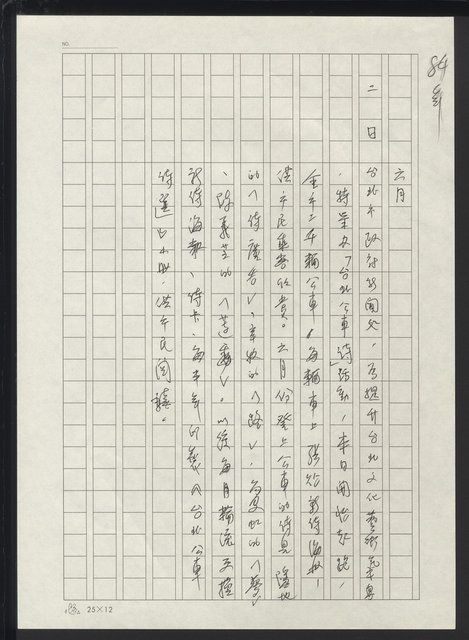 NO.
84年
六月
二日
台北市政府新聞處，為提升台北文化藝術氣息
，特策辦「台北公車詩」活動，本日開始起跑，
全市二千輛公車，每輛車上張貼新詩海報，
供市民乘客欣賞。六月份登上公車的詩是
的〈詩廣告〉、〈路〉、的〈夢〉
、的〈〉。以後每月輪流更換
新詩海報、詩卡，每半年印製《台北公車
詩選》小冊，供市民閱讀。
25×12